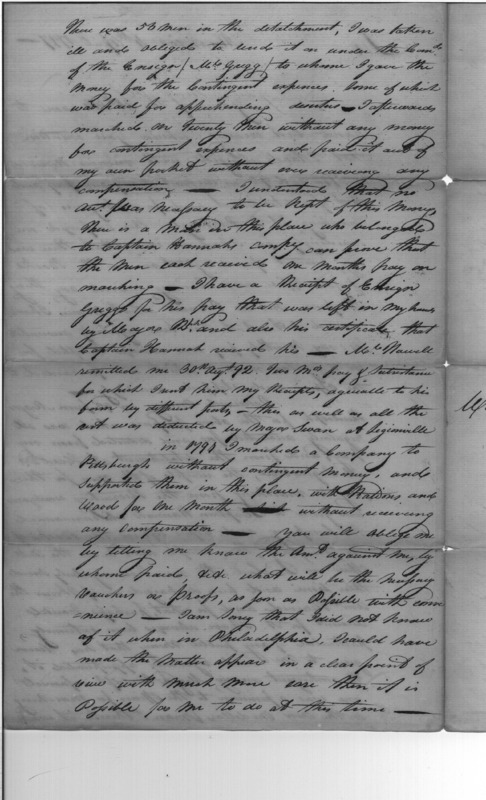 There was 53 men in the detatchment, I was taken
ill and obliged to send it on under the Comd
of the Ensign (Mr. Gregg) to whome I gave the
money for the Contingent expences. some of which
was paid for apprehending deserters — I afterwards
marched on Twenty Men without any money
for contingent expences and paid it out of
my own pocket without ever receiving any
compensation — I understand that no
acct. was nessasary to be kept of this Money
there is a Man in this place who belonged
to Captain Hannahs Compy can prove that
the Men each received one Months pay on
marching — I have a Receipt of Ensign
Greggs for his pay that was left in my hands
by Major and also his certificate, that
Captain Hannah received his — Mr. Howell
remitted me 30th Augt 92. two Mos pay &
for which I sent him my Receipts, agreable to his
form by different posts, — this as well as all the
rest was deducted by Major Swan at Legionville
in 1791 I marched a Company to
Pittsburgh without contingent Money, and
supported them in this place, with Rations and
Wood for one Month without receiving
any compensation — You will oblige me
by letting me know the Amt. against me, by
whome paid, &c& what will be the nessasary
Vouchers or Proofs, as soon as Possible with conv
=nience — I am sorry that I did not know
of it when in Philadelphia, I could have
made the Matter appear in a clear point of
view with much more ease then it is
Possible for me to do at this time —